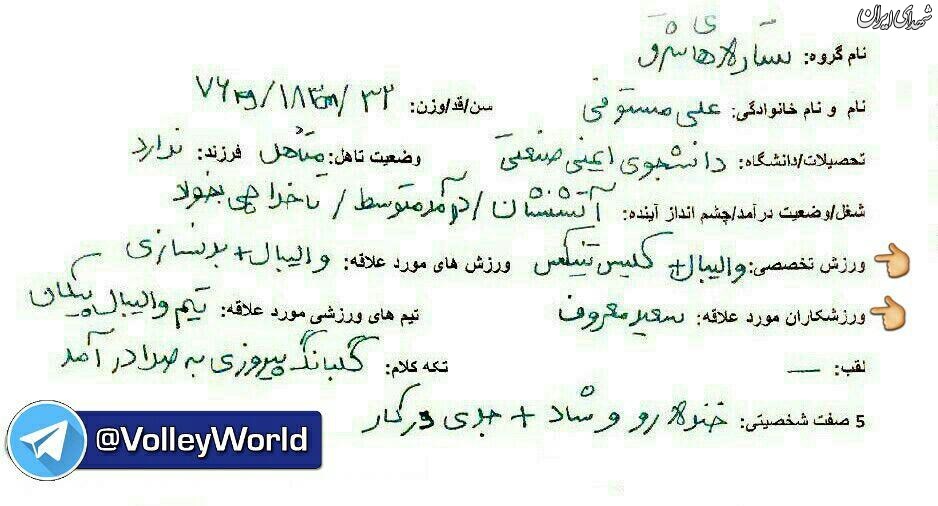 شهدای ایران
نام گروه: ستاره های شرق
نام و نام خانوادگی: علی مستوفی سن/قد/وزن: ۳۲ / ۱۸۳cm / ۷۶kg
تحصیلات/دانشگاه: دانشجوی ایمنی صنعتی وضعیت تاهل: متأهل فرزند: ندارد
شغل/وضعیت درآمد/چشم انداز آینده: آتشنشان / درآمد متوسط / تا خدا چی بخواد
ورزش تخصصی: والیبال + کلیس تنیکس ورزش های مورد علاقه: والیبال + بدنسازی
ورزشکاران مورد علاقه: سعید معروف تیم های ورزشی مورد علاقه: تیم والیبال پیکان
لقب: — تکه کلام: گلبانگ پیروزی به صدا در آمد
5 صفت شخصیتی: خنده رو و شاد + جدی در کار
@VolleyWorld